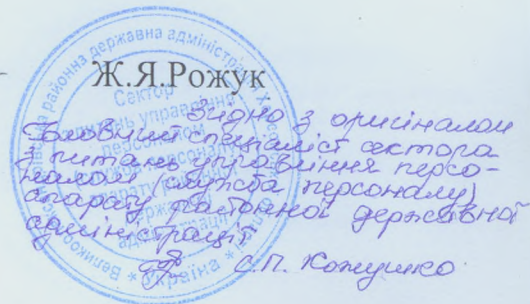 Ж.Я.Рожук
Згідно з оригіналом
Головний спеціаліст сектора
з питань управління персо-
налом (служба персоналу)
апарату районної державної
адміністрації
С.П. Кожушко
районна державна адміністрація
Сектор
з питань управління
персоналом
Україна